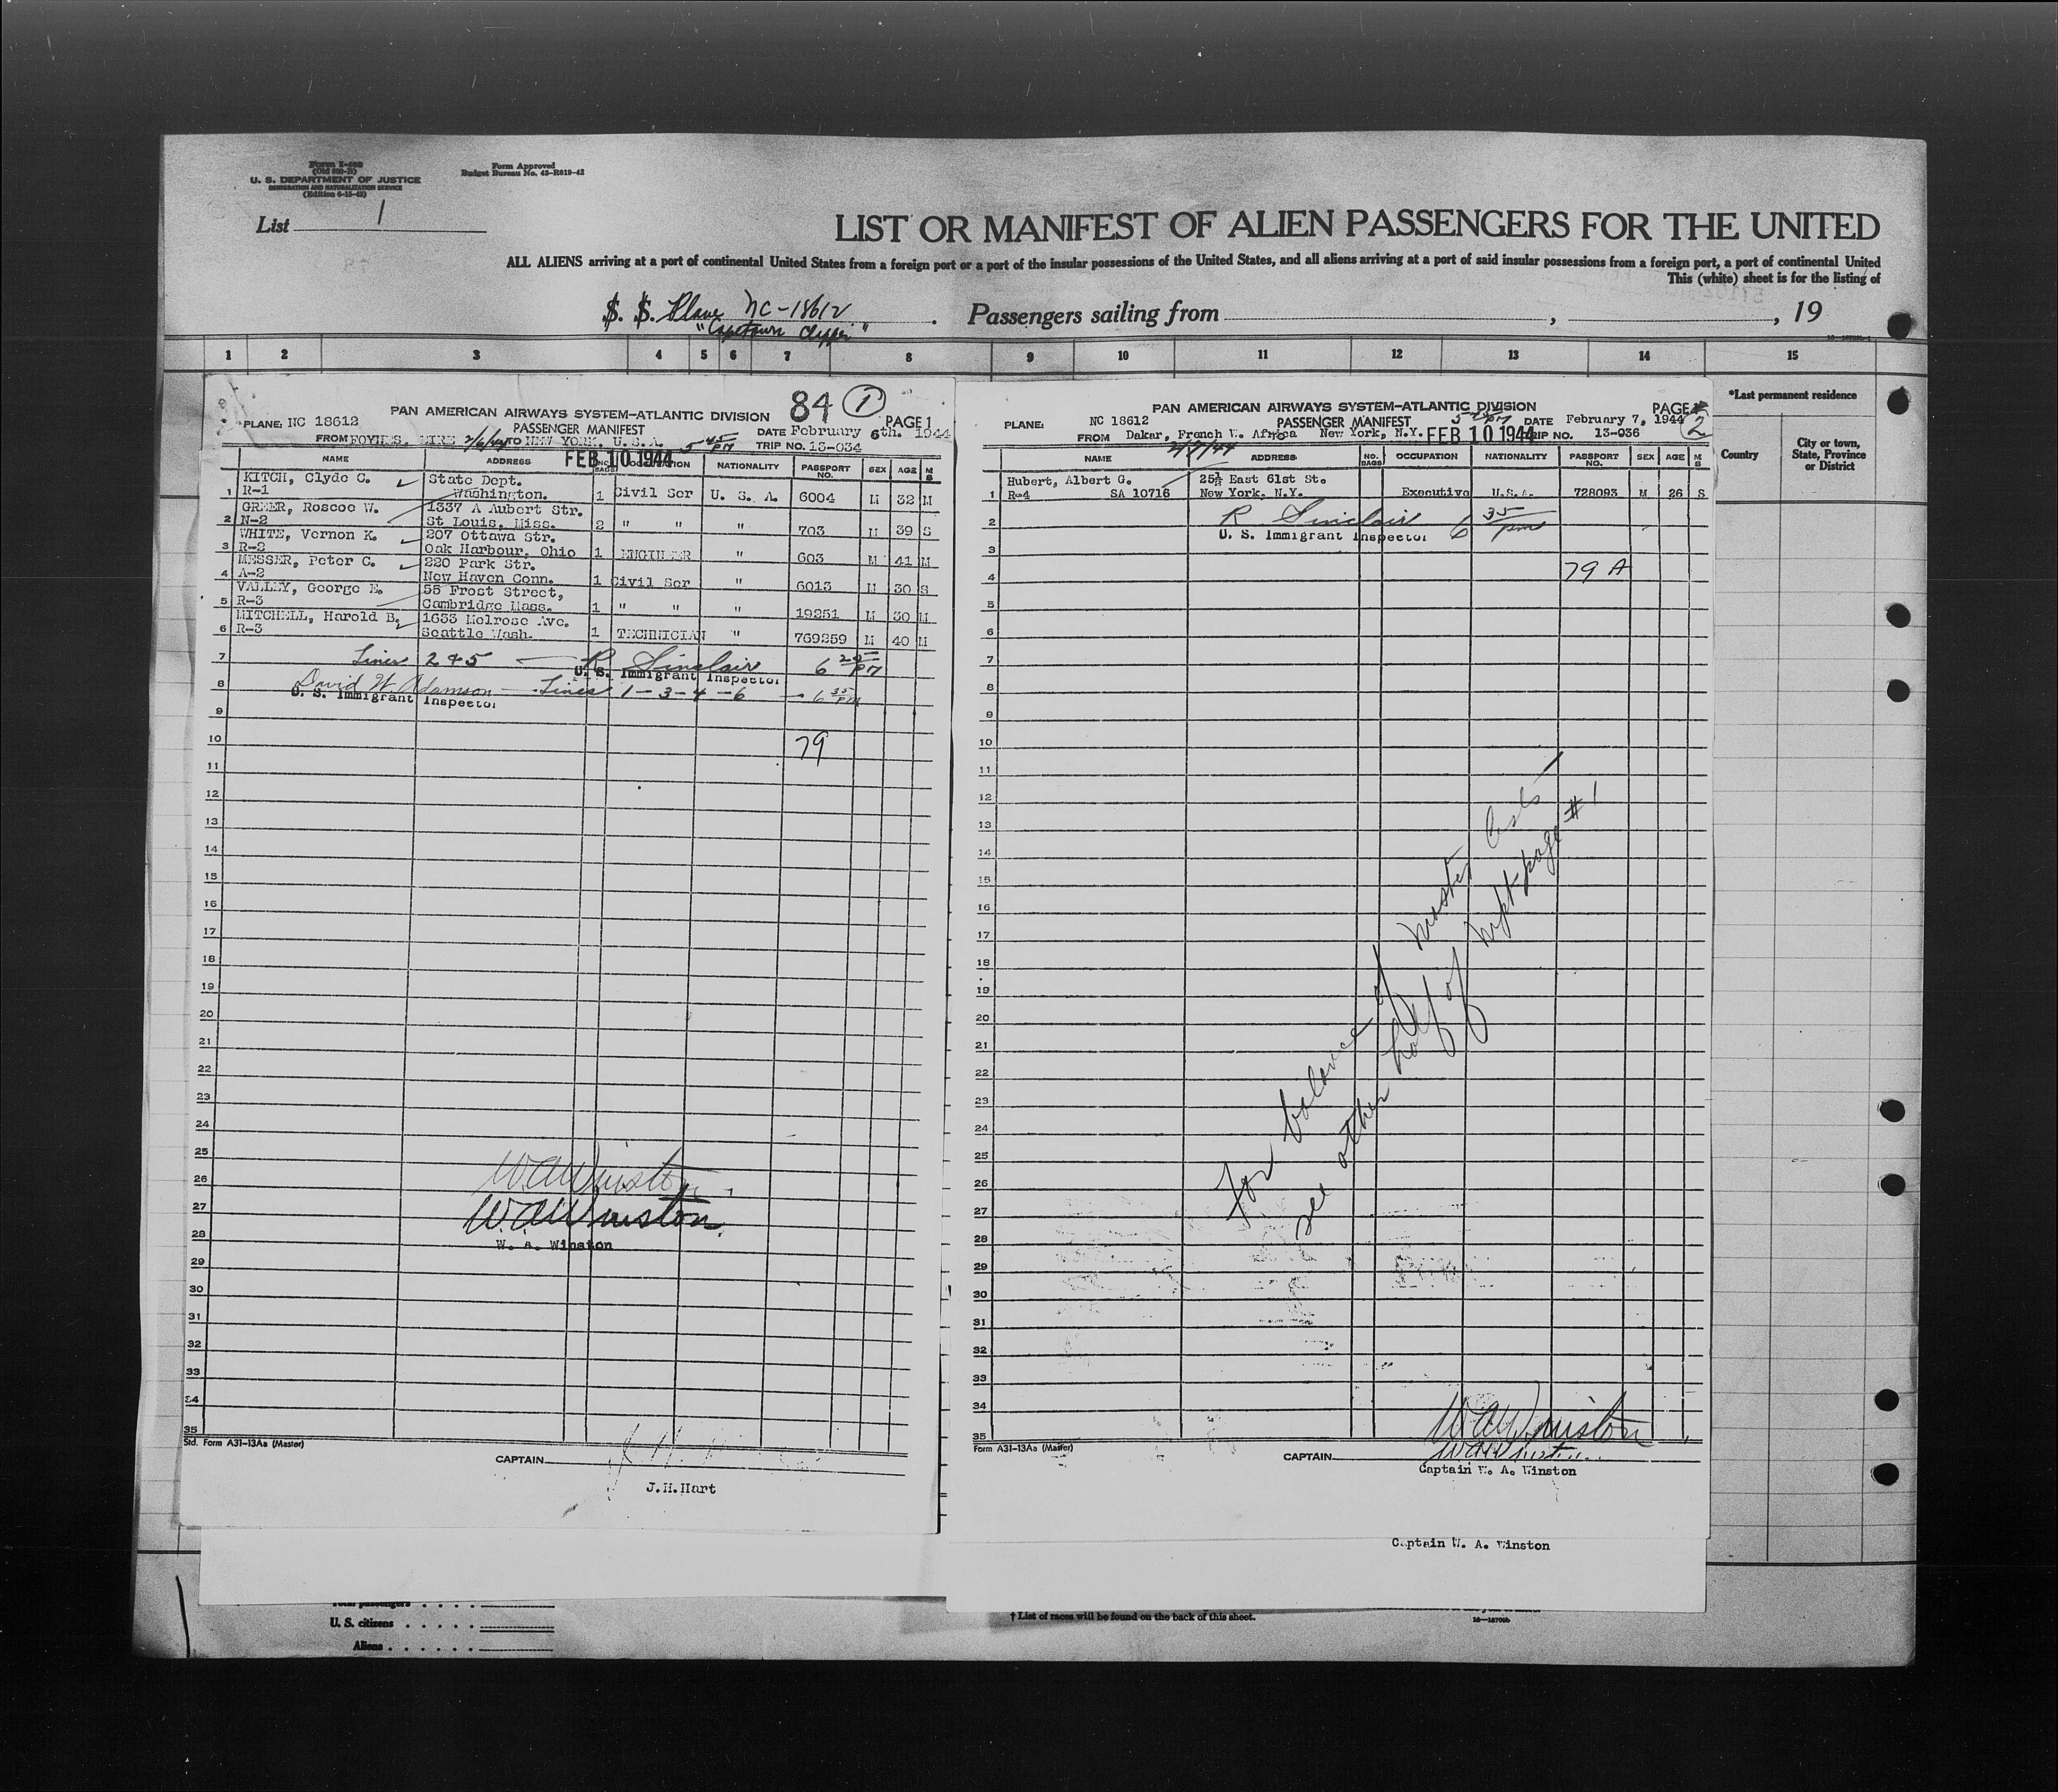 Form I-402
(Old 500-B)
U. S. DEPARTMENT OF JUSTICE
IMMIGRATION AND NATURALIZATION SERVICE
(Edition 6-15-43)
Form Approved
Budget Bureau No. 43-R019-42
List 1
LIST OR MANIFEST OF ALIEN PASSENGERS FOR THE UNITED
ALL ALIENS arriving at a port of continental United States from a foreign port or a port of the insular possessions of the United States, and all aliens arriving at a port of said insular possessions from a foreign port, a port of continental United
This (white) sheet is for the listing of
S. S. Plane NC-18612 . Passengers sailing from , , 19
"Capetown Clipper"
1 2 3 4 5 6 7 8 9 10 11 12 13 14 15
*Last permanent residence
Country
City or town,
State, Province
or District
84 1
PAN AMERICAN AIRWAYS SYSTEM—ATLANTIC DIVISION
PLANE: NC 18612 PASSENGER MANIFEST PAGE 1
FROM FOYNES, EIRE 2/6/44 TO NEW YORK, U.S.A. 5 45 PM DATE February 6th. 1944
FEB 10 1944 TRIP NO. 13-034
NAME ADDRESS NO. BAGS OCCUPATION NATIONALITY PASSPORT NO. SEX AGE M S
KITCH, Clyde C. State Dept.
1 R-1 Washington. 1 Civil Ser U. S. A. 6004 M 32 M
GREER, Roscoe W. 1337 A Aubert Str.
2 N-2 St Louis, Miss. 2 " " " 703 M 39 S
WHITE, Vernon K. 207 Ottawa Str.
3 R-2 Oak Harbour, Ohio 1 ENGINEER " 603 M 41 M
MESSER, Peter C. 220 Park Str.
4 A-2 New Haven Conn. 1 Civil Ser " 6013 M 30 S
VALLEY, George E. 55 Frost Street,
5 R-3 Cambridge Mass. 1 " " " 19251 M 30 M
MITCHELL, Harold B. 1633 Melrose Ave.
6 R-3 Seattle Wash. 1 TECHNICIAN " 769259 M 40 M
7 Lines 2 & 5 — R Sinclair 6 PM
U. S. Immigrant Inspector
8 David W. Adamson — Lines 1-3-4-6 — 6 35 PM
U. S. Immigrant Inspector
9
10 79
11
12
13
14
15
16
17
18
19
20
21
22
23
24
25
26 W A Winston
27 W. A. Winston
28 W. A. Winston
29
30
31
32
33
34
35
Std. Form A31-13Aa (Master)
CAPTAIN
J.H.Hart
PAN AMERICAN AIRWAYS SYSTEM—ATLANTIC DIVISION
PLANE: NC 18612 PASSENGER MANIFEST 5 45 PM DATE February 7, 1944 PAGE 2
FROM Dakar, French W. Africa New York, N.Y. FEB 10 1944 TRIP NO. 13-036
2/7/44
NAME ADDRESS NO. BAGS OCCUPATION NATIONALITY PASSPORT NO. SEX AGE M S
Hubert, Albert G. East 61st St.
1 R-4 SA 10716 New York, N.Y. Executive U.S.A. 728093 M 26 S
2 R Sinclair 6 35 pm
U. S. Immigrant Inspector
3
4 79 A
5
6
7
8
9
10
11
12
13
14
15
16
17
18
19
20
21
22
23
24
25
26
27
28
29
30
31
32
33
34
35
For balance of master lists
see other half of mft page #1
W A Winston
W A Winston
Form A31-13Aa (Master)
CAPTAIN
Captain W. A. Winston
Captain W. A. Winston
Total passengers
U. S. citizens
Aliens
† List of races will be found on the back of this sheet.